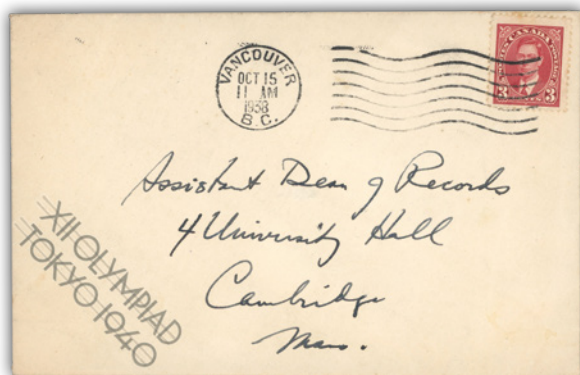 VANCOUVER
OCT 15
11 AM
1938
B.C.
3 3
Assistant Dean of Records
4 University Hall
Cambridge
Mass.
XII·OLYMPIAD
TOKYO·1940